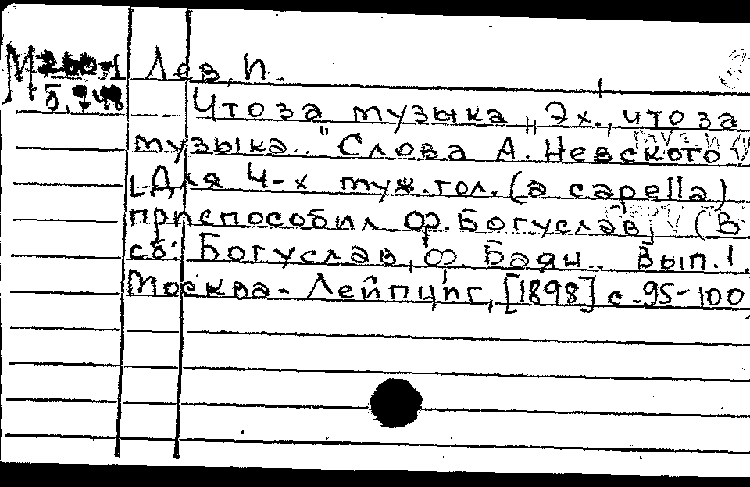 М 260-1 Лев, П.
Б. 748 Что за музыка „Эх., что за
музыка.." Слова А. Невского
[Для 4-х муж. гол. (a capella)
приспособил Ф. Богуслав] (В
сб: Богуслав, Ф. Баян. Вып. 1.
Москва - Лейпциг, [1898] с. 95-100)